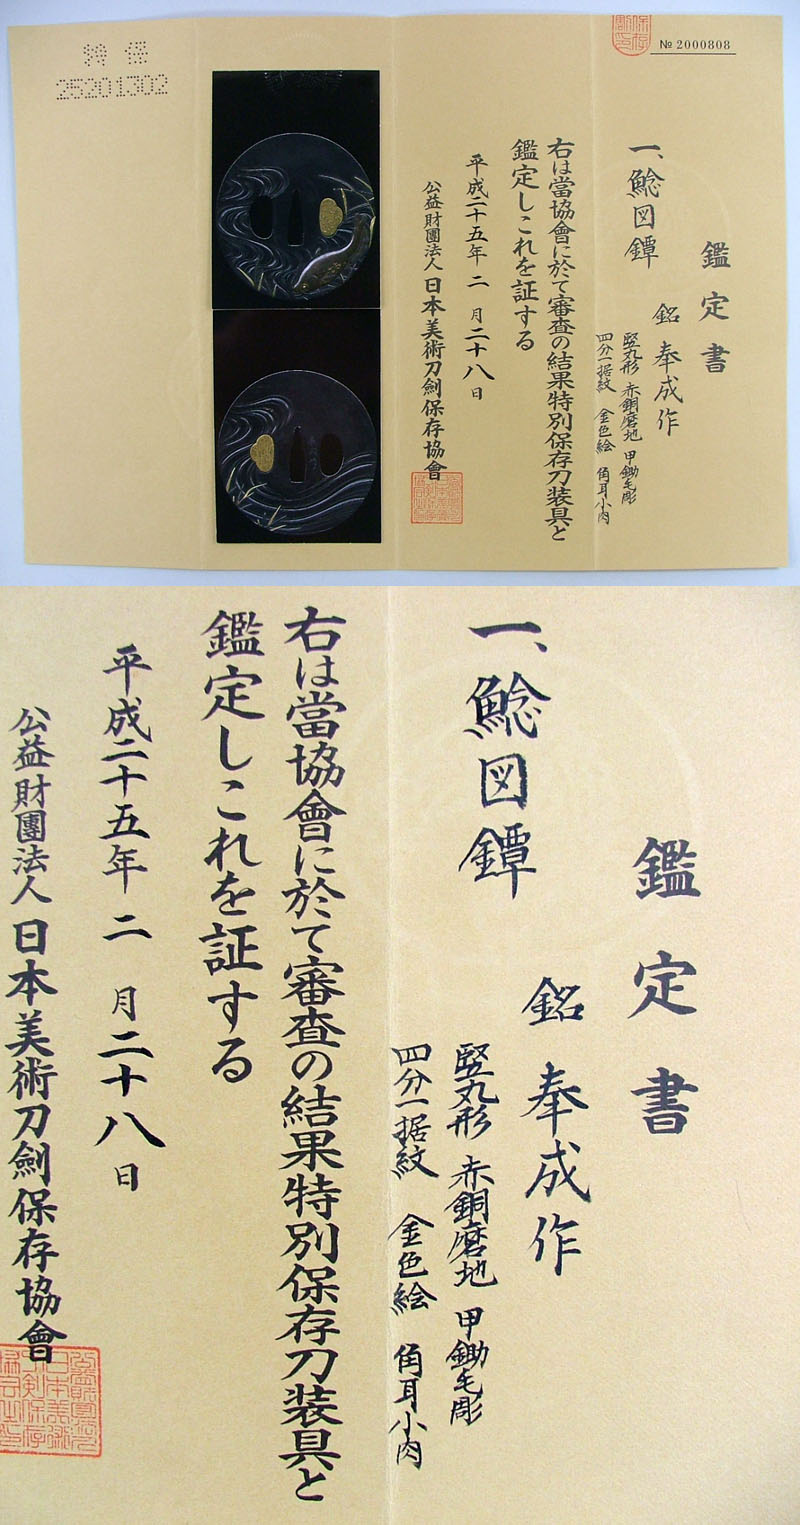 № 2000808
鑑定書
一、鯰図鐔
銘 奉成作
竪丸形 赤銅磨地 甲鋤毛彫
四分一据紋 金色絵 角耳小肉
右は當協會に於て審査の結果特別保存刀装具と
鑑定しこれを証する
平成二十五年 二 月二十八日
公益財團法人 日本美術刀劍保存協會
特 保
25201302
鑑定書
一、鯰図鐔
銘 奉成作
竪丸形 赤銅磨地 甲鋤毛彫
四分一据紋 金色絵 角耳小肉
右は當協會に於て審査の結果特別保存刀装具と
鑑定しこれを証する
平成二十五年 二 月二十八日
公益財團法人 日本美術刀劍保存協會